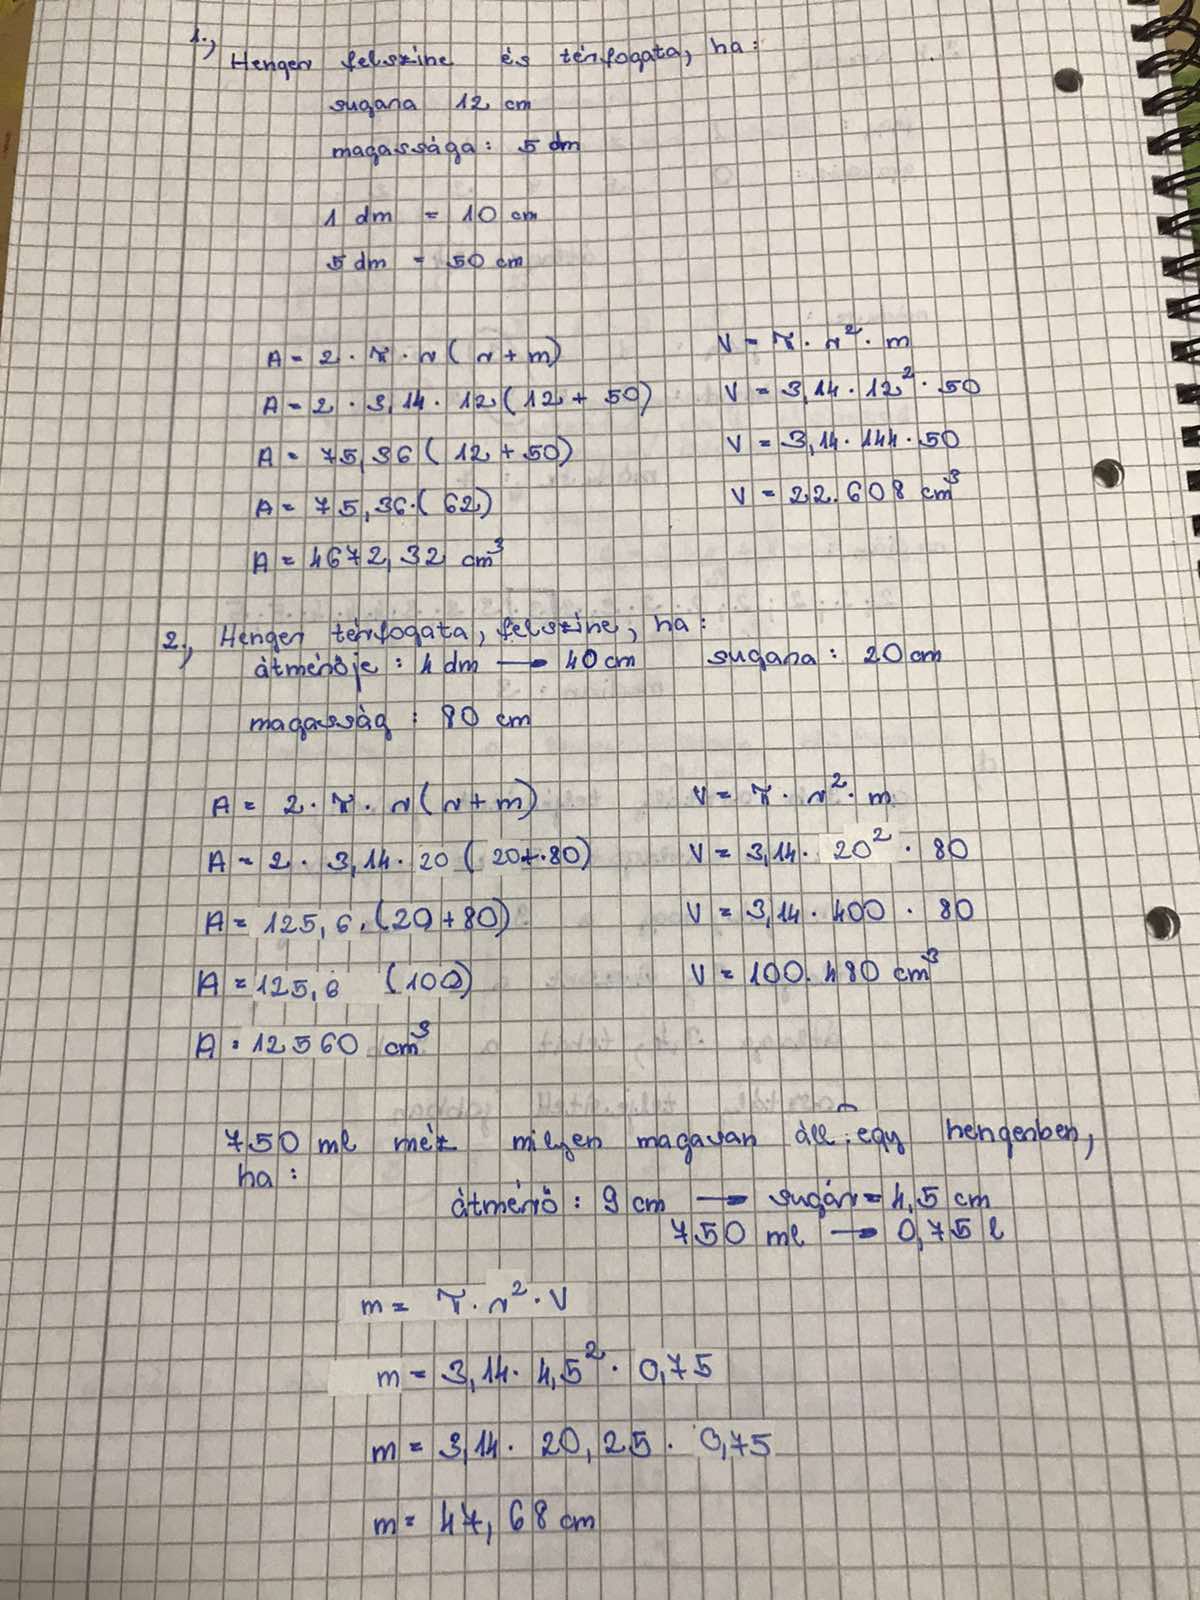 1.,
Henger felszíne és térfogata, ha:
sugara 12 cm
magassága: 5 dm
1 dm = 10 cm
5 dm = 50 cm
A = 2 · π · r ( r + m)
A = 2 · 3,14 · 12 ( 12 + 50)
A = 75,36 ( 12 + 50)
A = 75,36 · ( 62)
A = 4672,32 cm³
V = π · r² · m
V = 3,14 · 12² · 50
V = 3,14 · 144 · 50
V = 22.608 cm³
2., Henger térfogata, felszíne, ha:
átmérője : 4 dm → 40 cm sugara : 20 cm
magasság : 80 cm
A = 2 · π · r ( r + m)
A = 2 · 3,14 · 20 ( 20+80)
A = 125,6 · (20 + 80)
A = 125,6 (100)
A = 12560 cm³
V = π · r² · m
V = 3,14 · 20² · 80
V = 3,14 · 400 · 80
V = 100.480 cm³
750 ml méz milyen magasan áll egy hengerben,
ha :
átmérő : 9 cm → sugár = 4,5 cm
750 ml → 0,75 l
m = π · r² · V
m = 3,14 · 4,5² · 0,75
m = 3,14 · 20,25 · 0,75
m = 47,68 cm